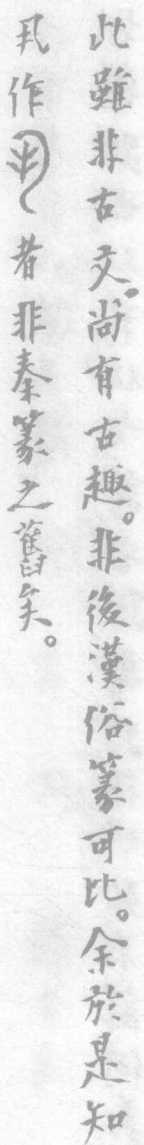 此雖非古文。尚有古趣。非後漢俗篆可比。余於是知
凡作者非秦篆之舊矣。